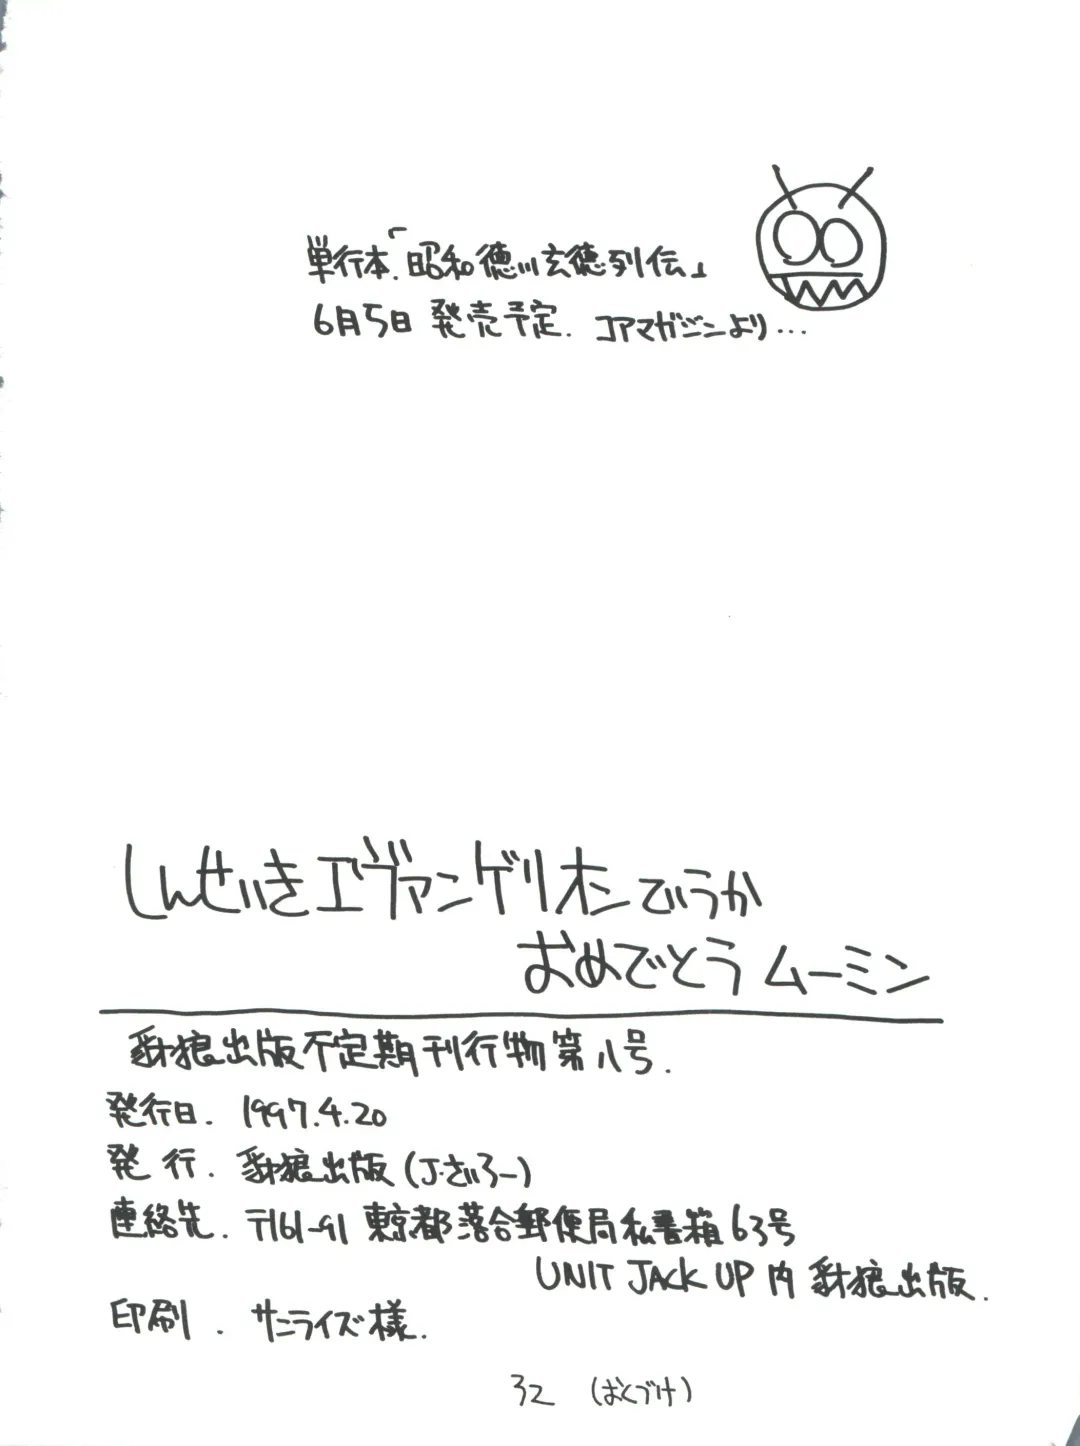 単行本.「昭和徳川玄徳列伝」
6月5日 発売予定. コアマガジンより...
しんせいきエヴァンゲリオンていうか
おめでとう ムーミン
豺狼出版不定期刊行物第八号.
発行日. 1997.4.20
発行. 豺狼出版(J.さいろー)
連絡先. 〒161-91 東京都落合郵便局私書箱63号
UNIT JACK UP内 豺狼出版.
印刷. サンライズ様.
32 (おくづけ)